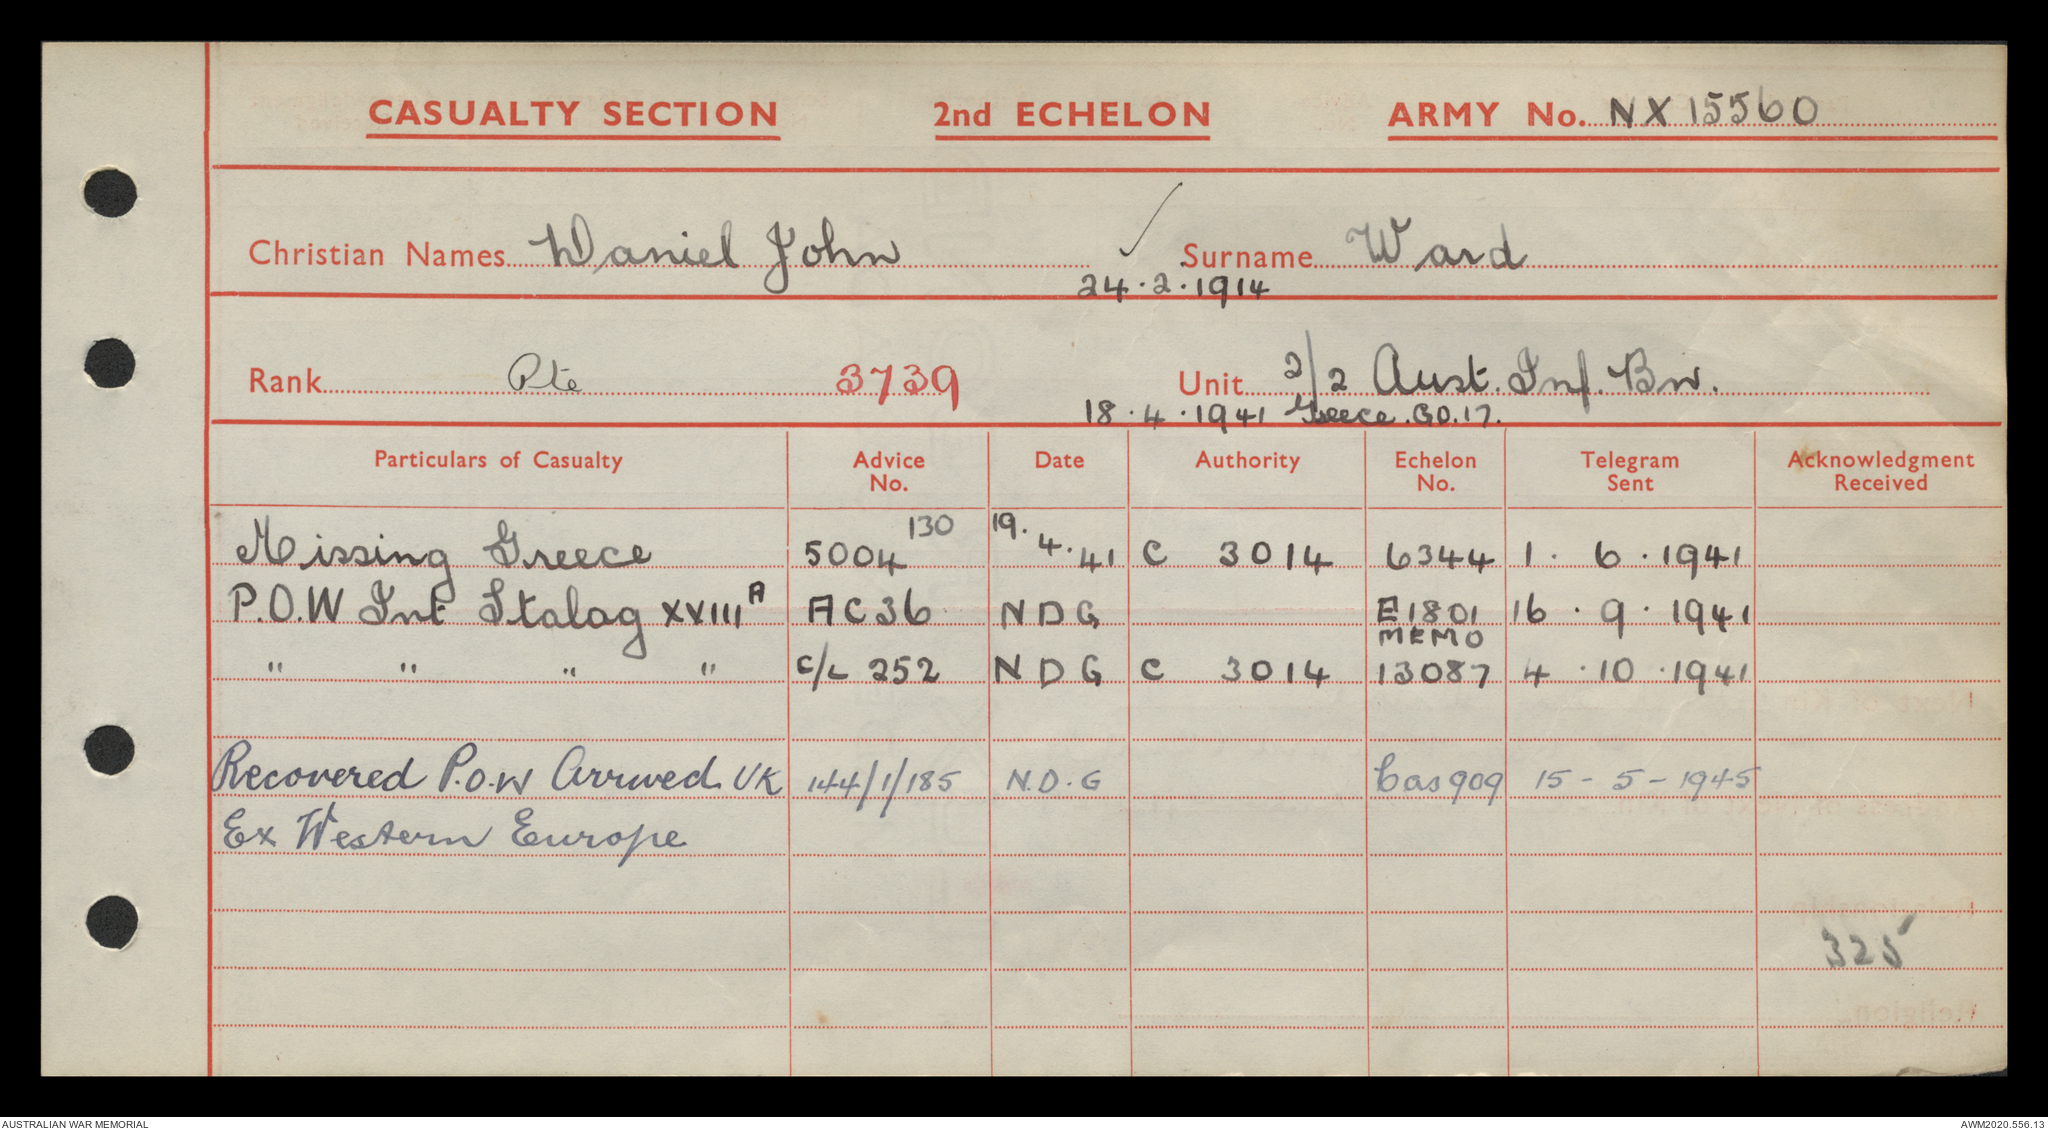 CASUALTY SECTION 2nd ECHELON ARMY No. NX 15560
Christian Names Daniel John Surname Ward
24.2.1914
Rank Pte 3739 Unit 2/2 Aust. Inf. Bn.
18.4.1941 Greece. GO.17.
Particulars of Casualty Advice No. Date Authority Echelon No. Telegram Sent Acknowledgment Received
Missing Greece 5004 130 19.4.41 C 3014 6344 1. 6. 1941
P.O.W Int Stalag XVIII A AC36 NDG E1801 16. 9. 1941
MEMO
" " " " C/L 252 NDG C 3014 13087 4. 10. 1941
Recovered P.O.W Arrived UK 144/1/185 N.D.G Cas 909 15-5-1945
Ex Western Europe
325
AUSTRALIAN WAR MEMORIAL AWM2020.556.13